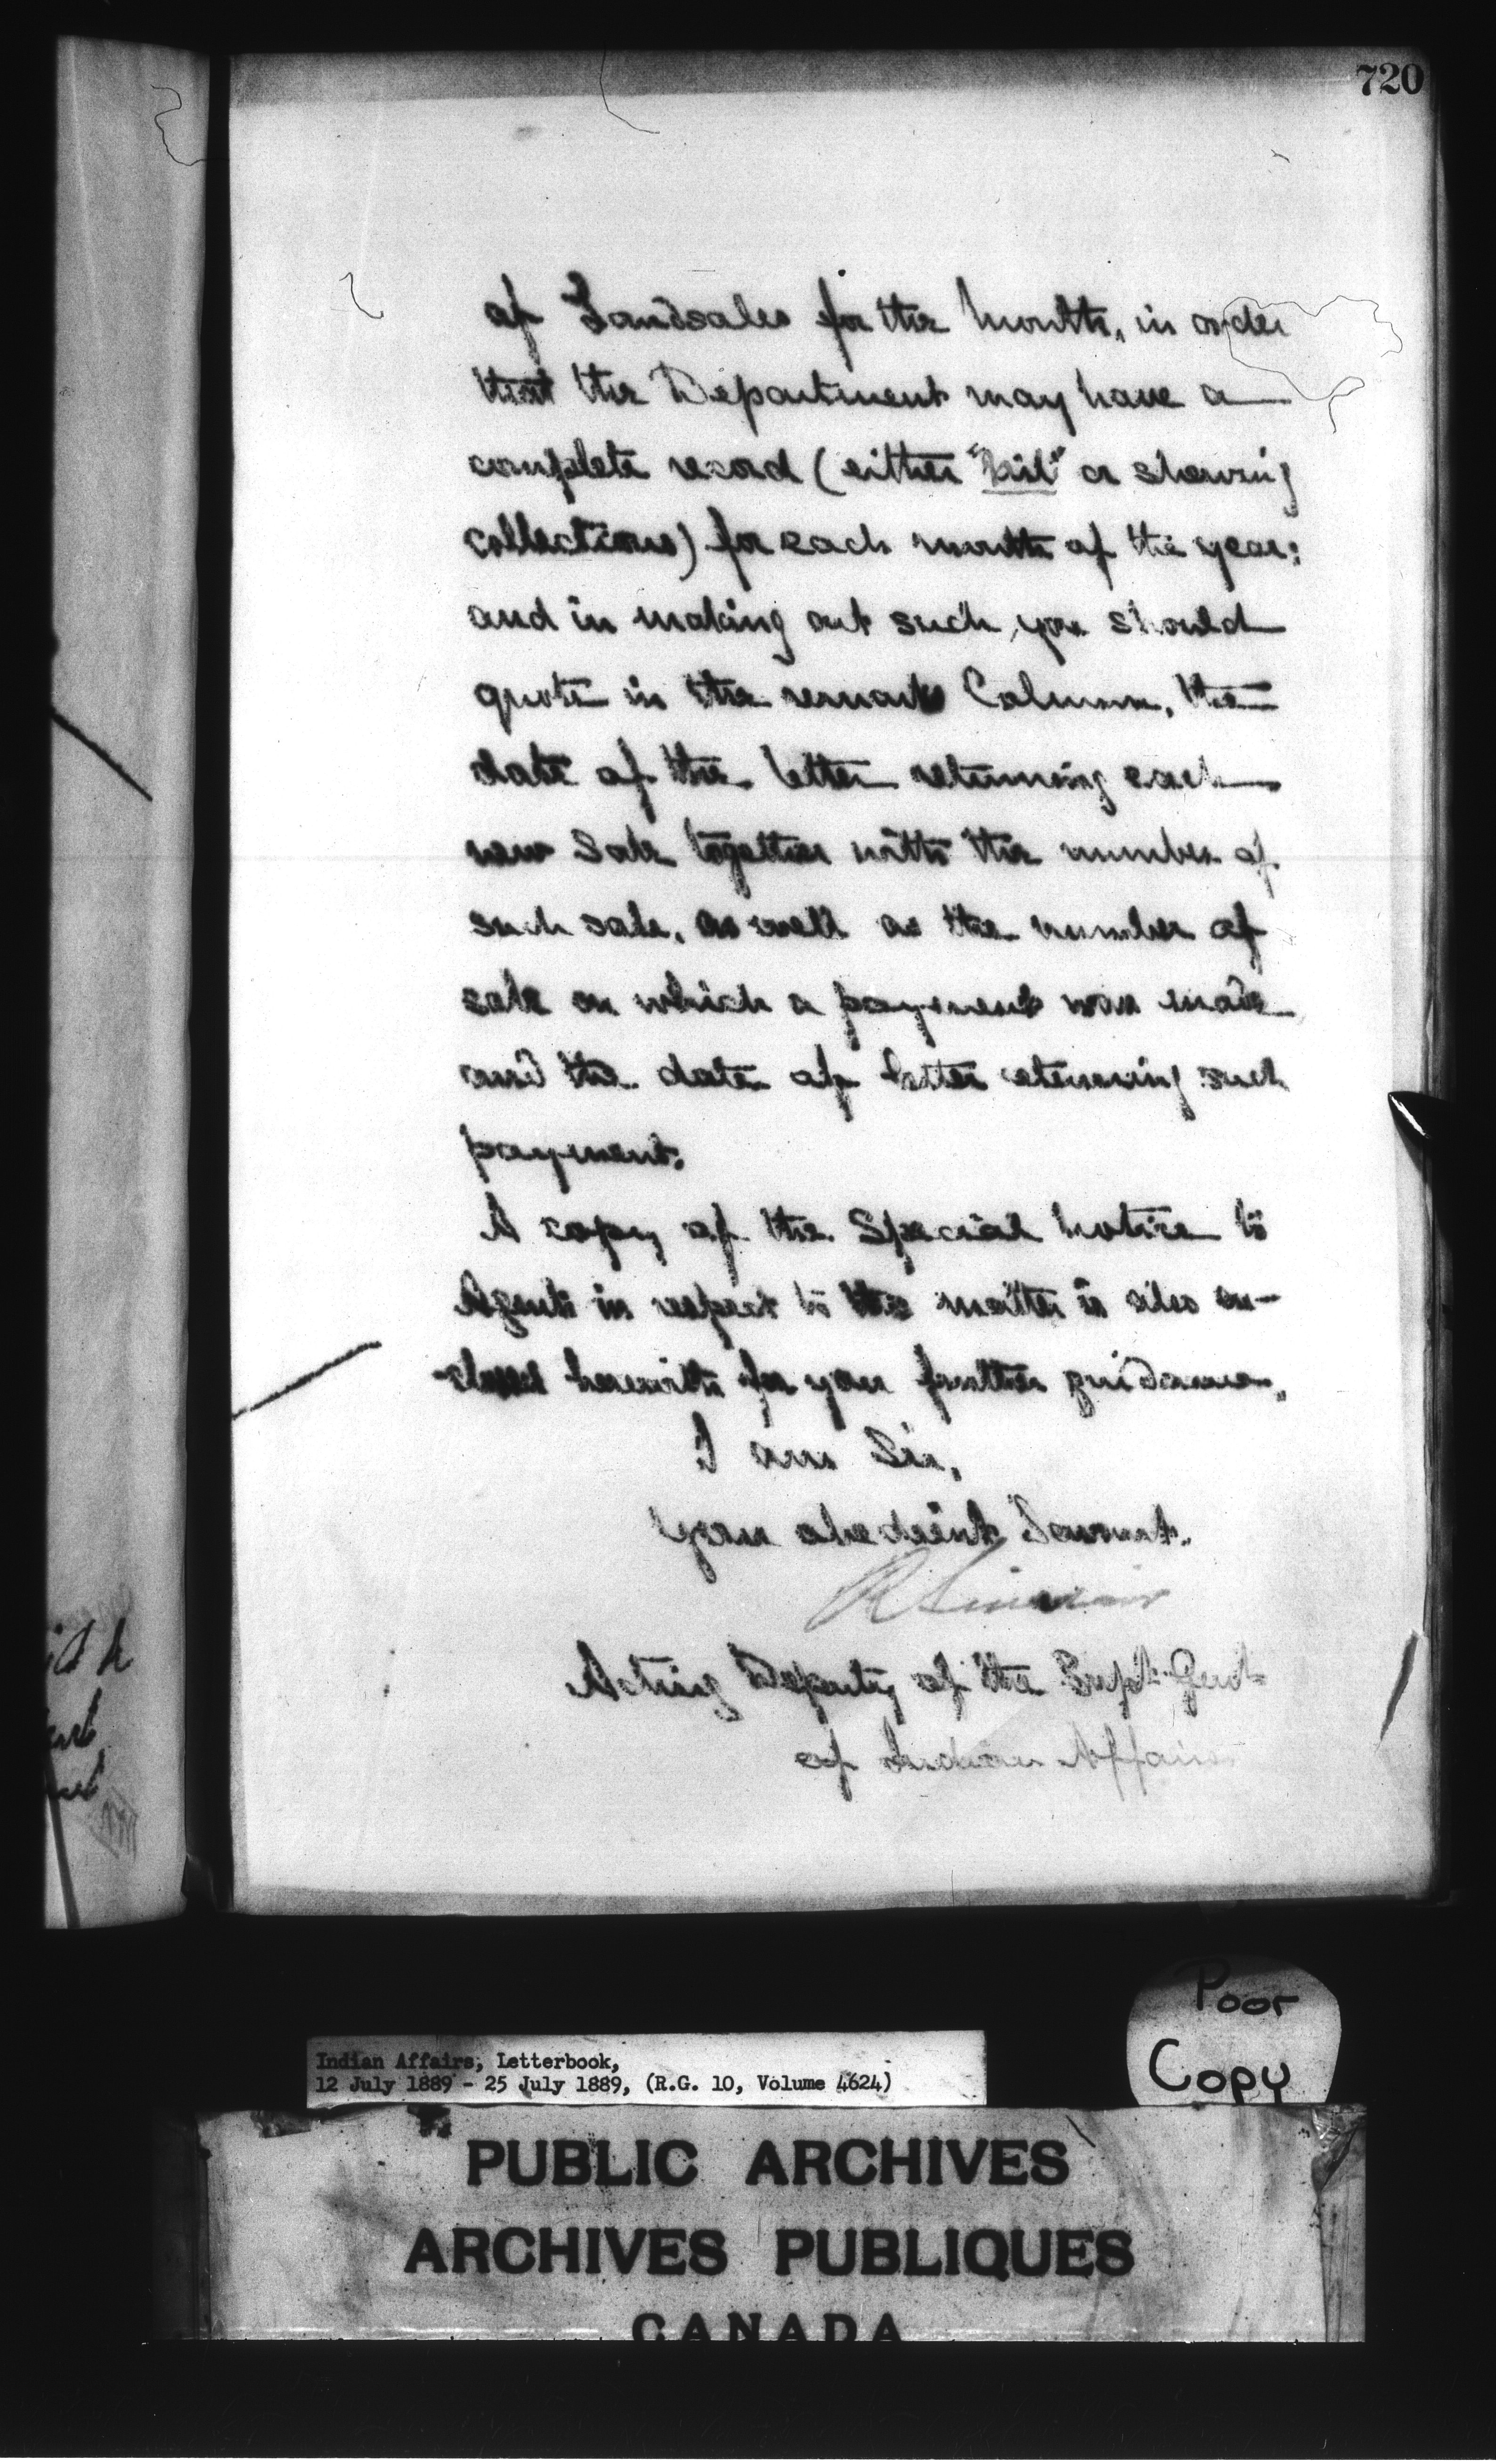 720
of Landsales for the month, in order
that the Department may have a
complete record (either "nil" or shewing
collections) for each month of the year;
and in making out such, you should
quote in the remark Column, the
date of the letter returning each
new Sale together with the number of
such sale, as well as the number of
sale on which a payment was made
and the date of letter returning such
payment.
A copy of the Special notice to
Agents in respect to this matter is also en-
-closed herewith for your further guidance.
I am Sir,
Your obedient Servant.
R Sinclair
Acting Deputy of the Supt. Genl
of Indian Affairs
Poor
Copy
Indian Affairs, Letterbook,
12 July 1889 - 25 July 1889, (R.G. 10, Volume 4624)
PUBLIC ARCHIVES
ARCHIVES PUBLIQUES
CANADA